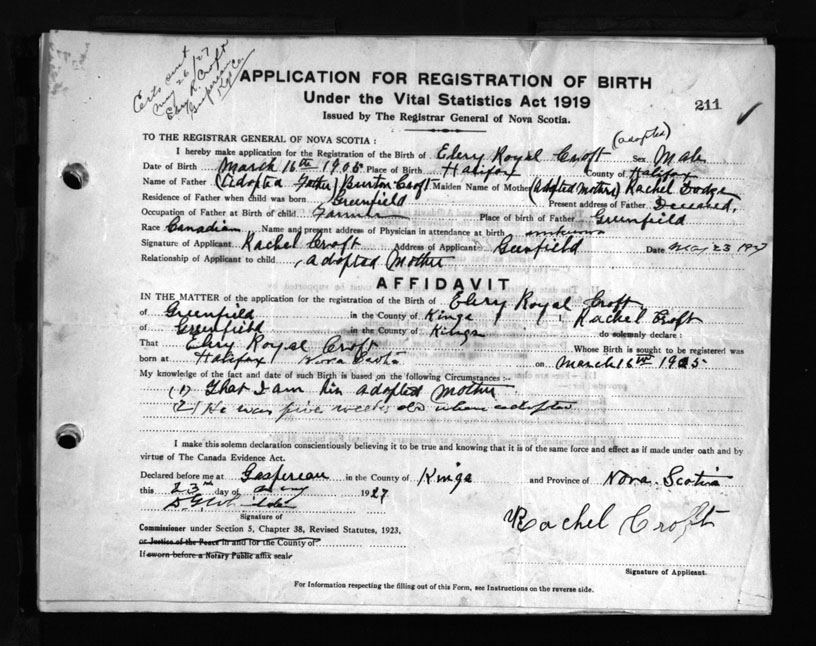 Certs sent
May 26/27
Elery R. Croft
Gaspereau
Kgs Co.
APPLICATION FOR REGISTRATION OF BIRTH
Under the Vital Statistics Act 1919
211
Issued by The Registrar General of Nova Scotia.
TO THE REGISTRAR GENERAL OF NOVA SCOTIA :
(adopted)
I hereby make application for the Registration of the Birth of Elery Royal Croft Sex Male
Date of Birth March 16th 1905 Place of Birth Halifax County of Halifax
Name of Father (Adopted Father) Burton Croft Maiden Name of Mother (Adopted Mother) Rachel Dodge
Residence of Father when child was born Greenfield Present address of Father Deceased.
Occupation of Father at Birth of child Farmer Place of birth of Father Greenfield
Race Canadian Name and present address of Physician in attendance at birth unknown
Signature of Applicant Rachel Croft Address of Applicant Greenfield Date May 23 1927
Relationship of Applicant to child, adopted Mother
AFFIDAVIT
IN THE MATTER of the application for the registration of the Birth of Elery Royal Croft
of Greenfield in the County of Kings I Rachel Croft
of Greenfield in the County of Kings do solemnly declare :
That Elery Royal Croft Whose Birth is sought to be registered was
born at Halifax Nova Scotia on March 16th 1905
My knowledge of the fact and date of such Birth is based on the following Circumstances :-
(1) That I am his adopted Mother
(2) He was five weeks old when adopted
I make this solemn declaration conscientiously believing it to be true and knowing that it is of the same force and effect as if made under oath and by
virtue of The Canada Evidence Act.
Declared before me at Gaspereau in the County of Kings and Province of Nova Scotia
this 23rd day of May 1927
Rachel Croft
Signature of
Commissioner under Section 5, Chapter 38, Revised Statutes, 1923,
or Justice of the Peace in and for the County of
If sworn before a Notary Public affix seal
Signature of Applicant.
For Information respecting the filling out of this Form, see Instructions on the reverse side.